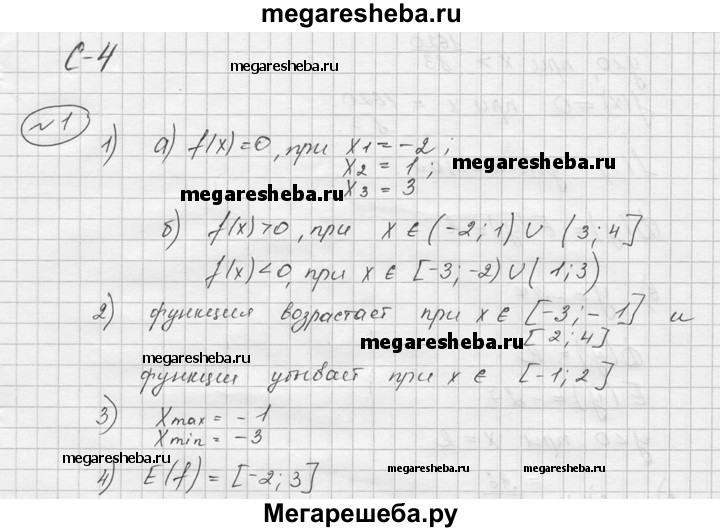 megaresheba.ru
С-4
megaresheba.ru
№1
1) а) f(x)=0, при x1 = -2;
x2 = 1;
megaresheba.ru
x3 = 3
megaresheba.ru
б) f(x)>0, при x ∈ (-2; 1) ∪ (3; 4]
f(x)<0, при x ∈ [-3; -2) ∪ (1; 3)
2) функция возрастает при x ∈ [-3; -1] и
[2; 4]
megaresheba.ru
megaresheba.ru
функции убывает при x ∈ [-1; 2]
3) Xmax = -1
Xmin = -3
megaresheba.ru
megaresheba.ru
megaresheba.ru
4) E(f) = [-2; 3]
Мегарешеба.ру